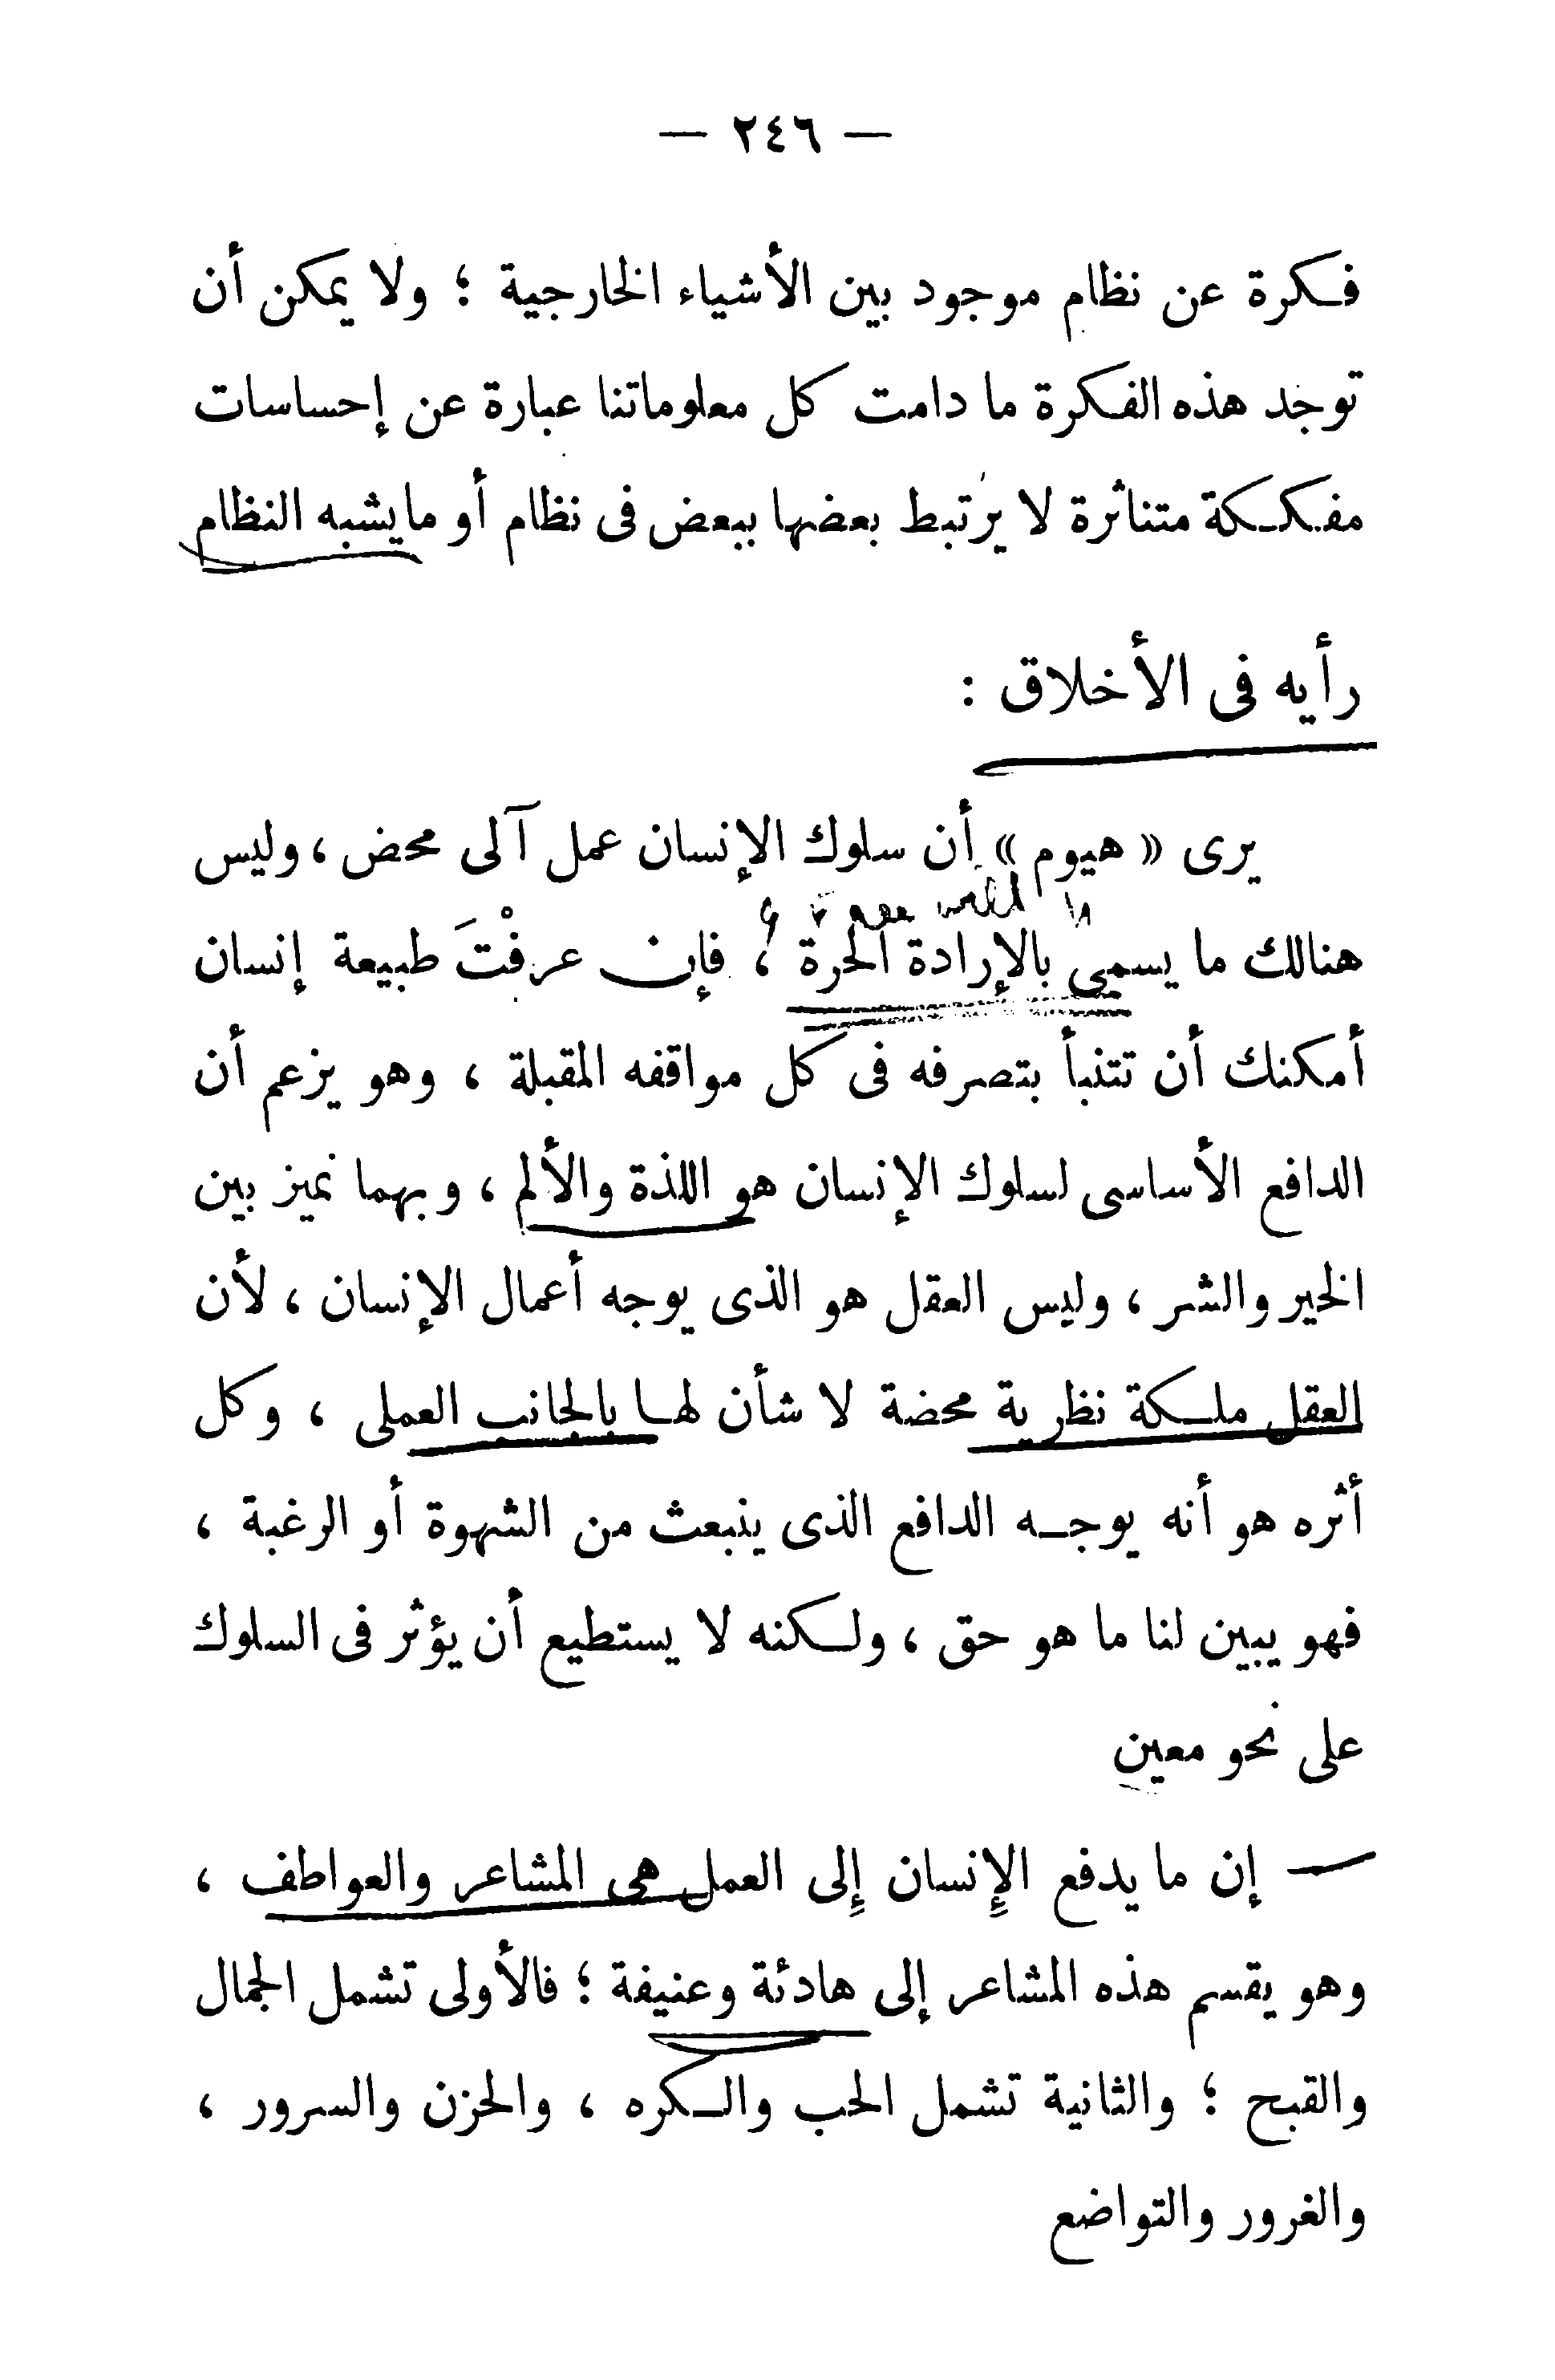 — ٢٤٦ —
فكرة عن نظام موجود بين الأشياء الخارجية ؛ ولا يمكن أن
توجد هذه الفكرة ما دامت كل معلوماتنا عبارة عن إحساسات
مفككة متناثرة لا يرتبط بعضها ببعض فى نظام أو ما يشبه النظام
رأيه فى الأخلاق :
يرى « هيوم » أن سلوك الإنسان عمل آلى محض ، وليس
هنالك ما يسمى بالإرادة الحرة ، فإن عرفْتَ طبيعة إنسان
أمكنك أن تتنبأ بتصرفه فى كل مواقفه المقبلة ، وهو يزعم أن
الدافع الأساسى لسلوك الإنسان هو اللذة والألم ، وبهما نميز بين
الخير والشر ، وليس العقل هو الذى يوجه أعمال الإنسان ، لأن
العقل ملكة نظرية محضة لا شأن لها بالجانب العملى ، وكل
أثره هو أنه يوجه الدافع الذى ينبعث من الشهوة أو الرغبة ،
فهو يبين لنا ما هو حق ، ولكنه لا يستطيع أن يؤثر فى السلوك
على نحو معين
— إن ما يدفع الإنسان إلى العمل هى المشاعر والعواطف ،
وهو يقسم هذه المشاعر إلى هادئة وعنيفة ؛ فالأولى تشمل الجمال
والقبح ؛ والثانية تشمل الحب والكره ، والحزن والسرور ،
والغرور والتواضع